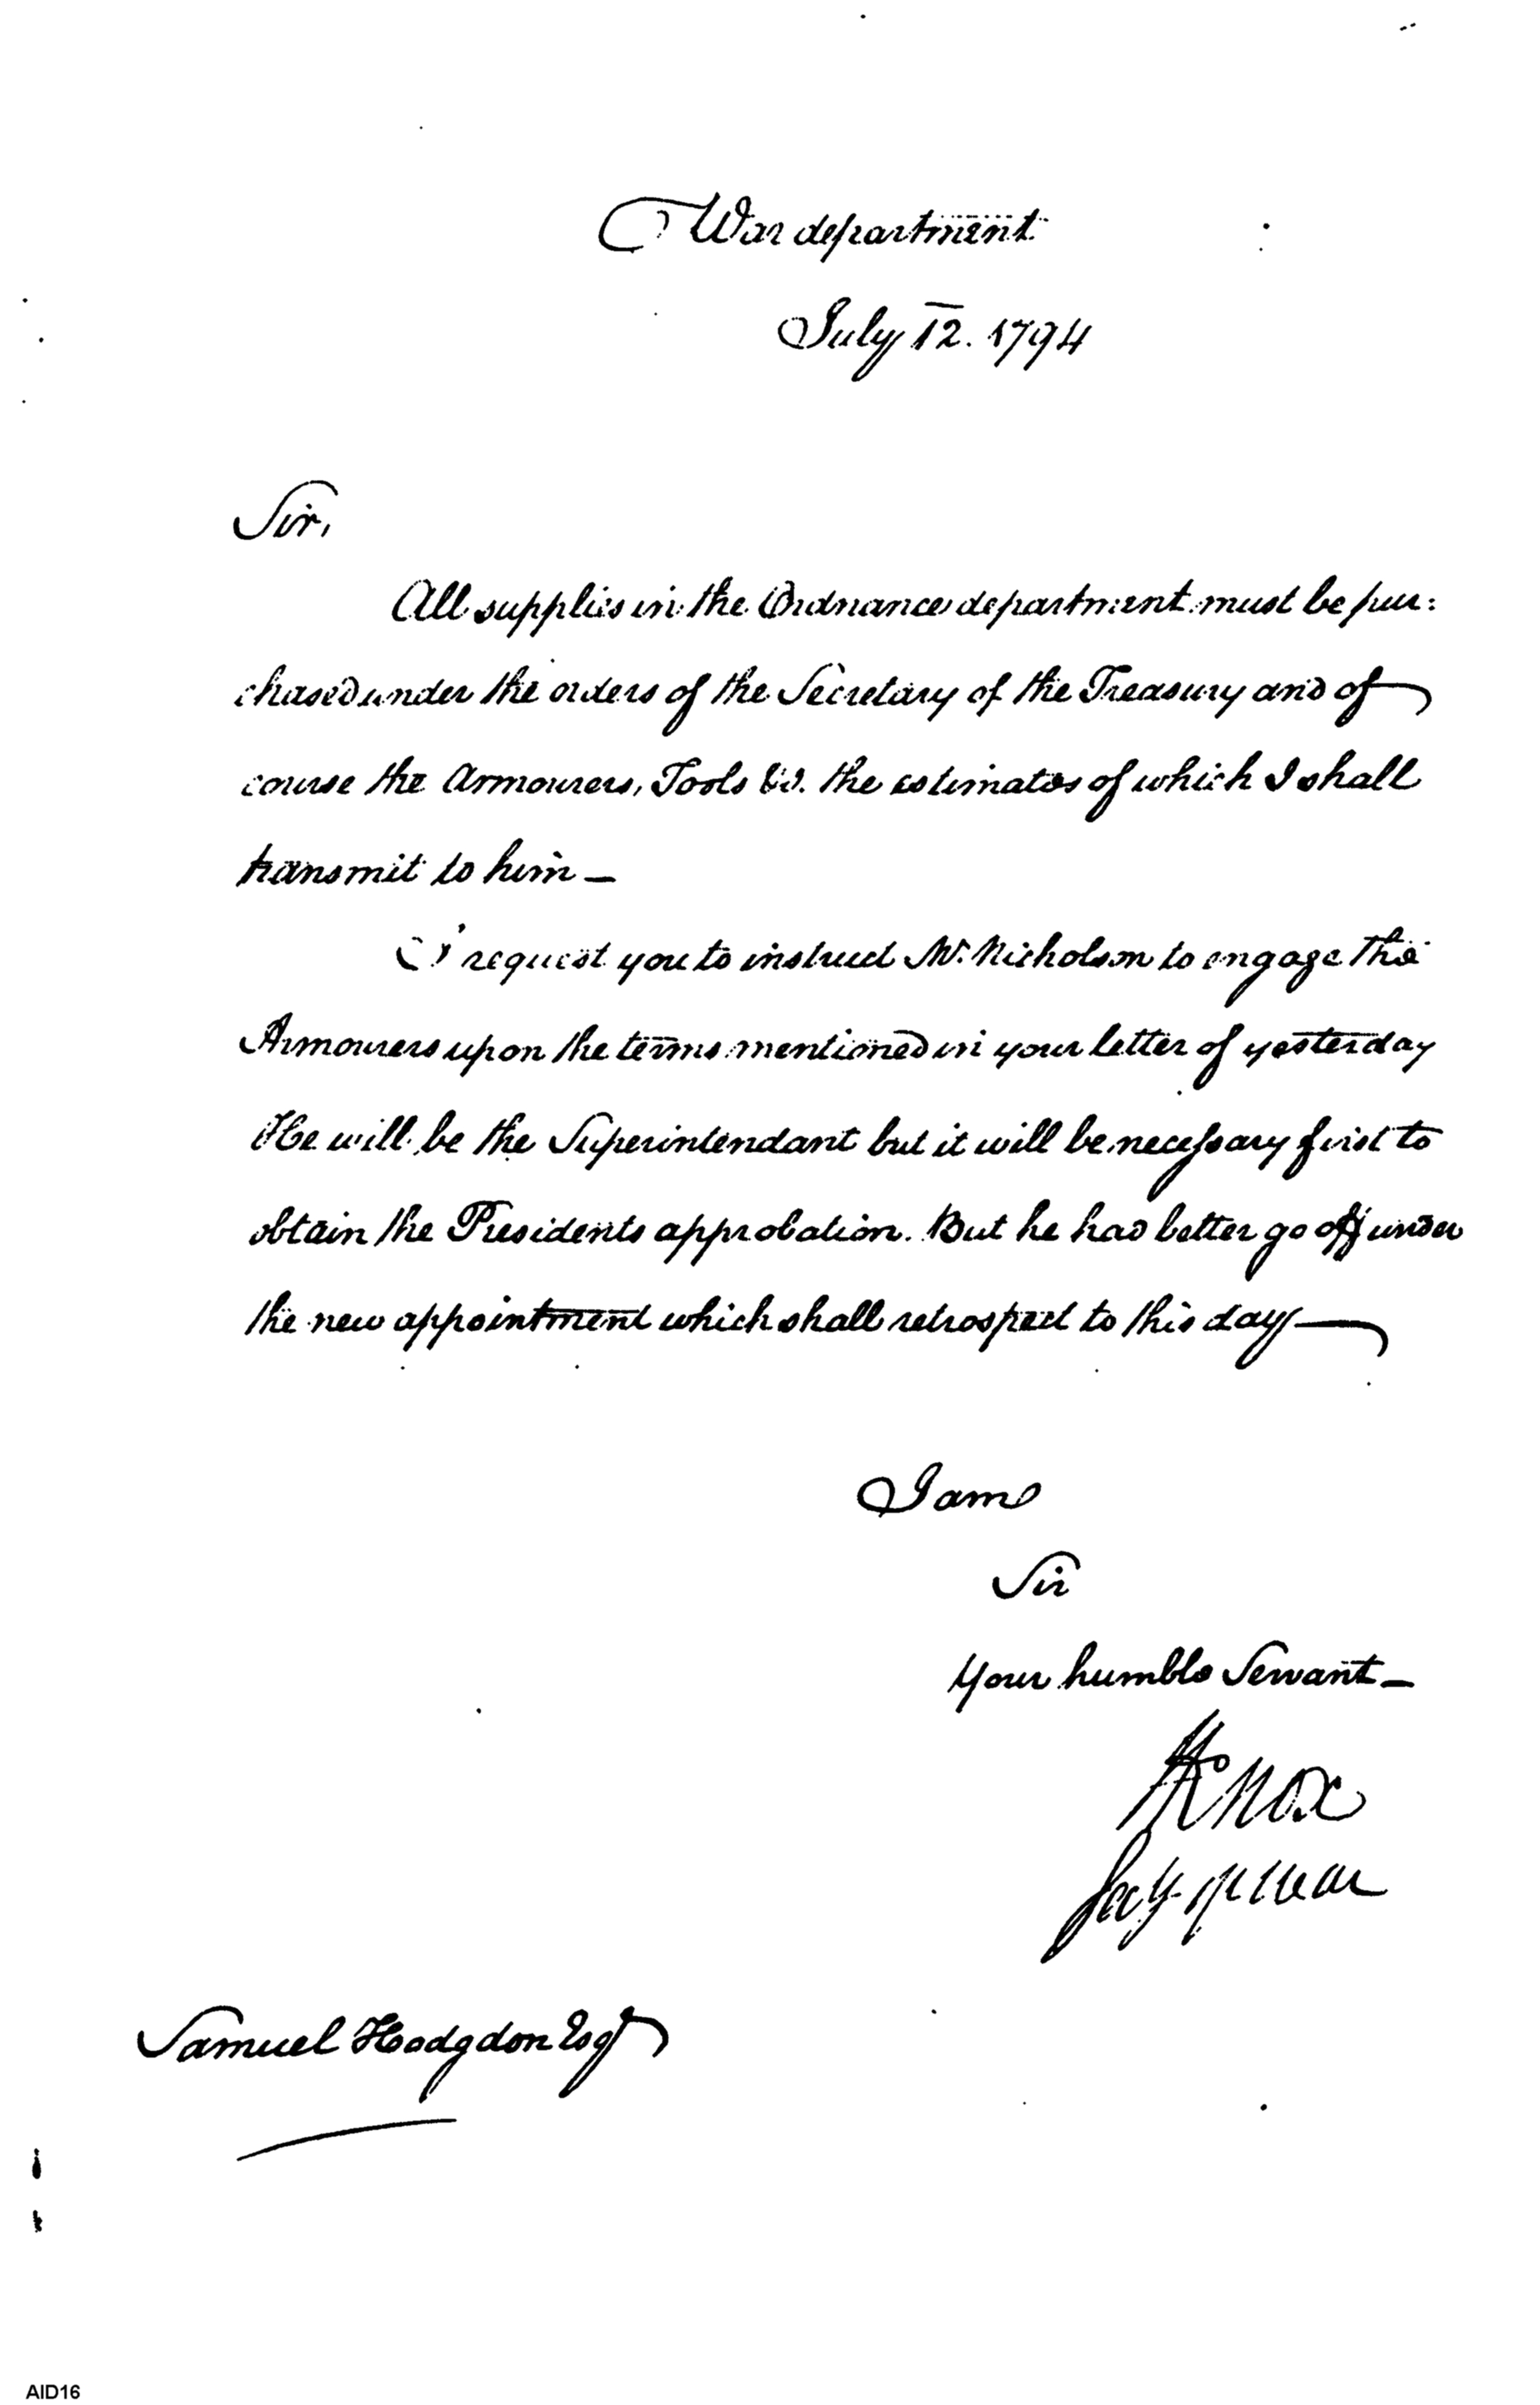 War department
July 12. 1794
Sir,
All supplies in the Ordnance department must be pur:
chased under the orders of the Secretary of the Treasury and of
course the Armourers, Tools &c. the estimates of which I shall
transmit to him –
I request you to instruct Mr. Nicholson to engage the
Armourers upon the terms mentioned in your letter of yesterday
He will be the Superintendant but it will be necessary first to
obtain the Presidents approbation. But he had better go off under
the new appointment which shall retrospect to this day —
I am
Sir
Your humble Servant –
HKnox
Secy of war
Samuel Hodgdon Esqr
AID16